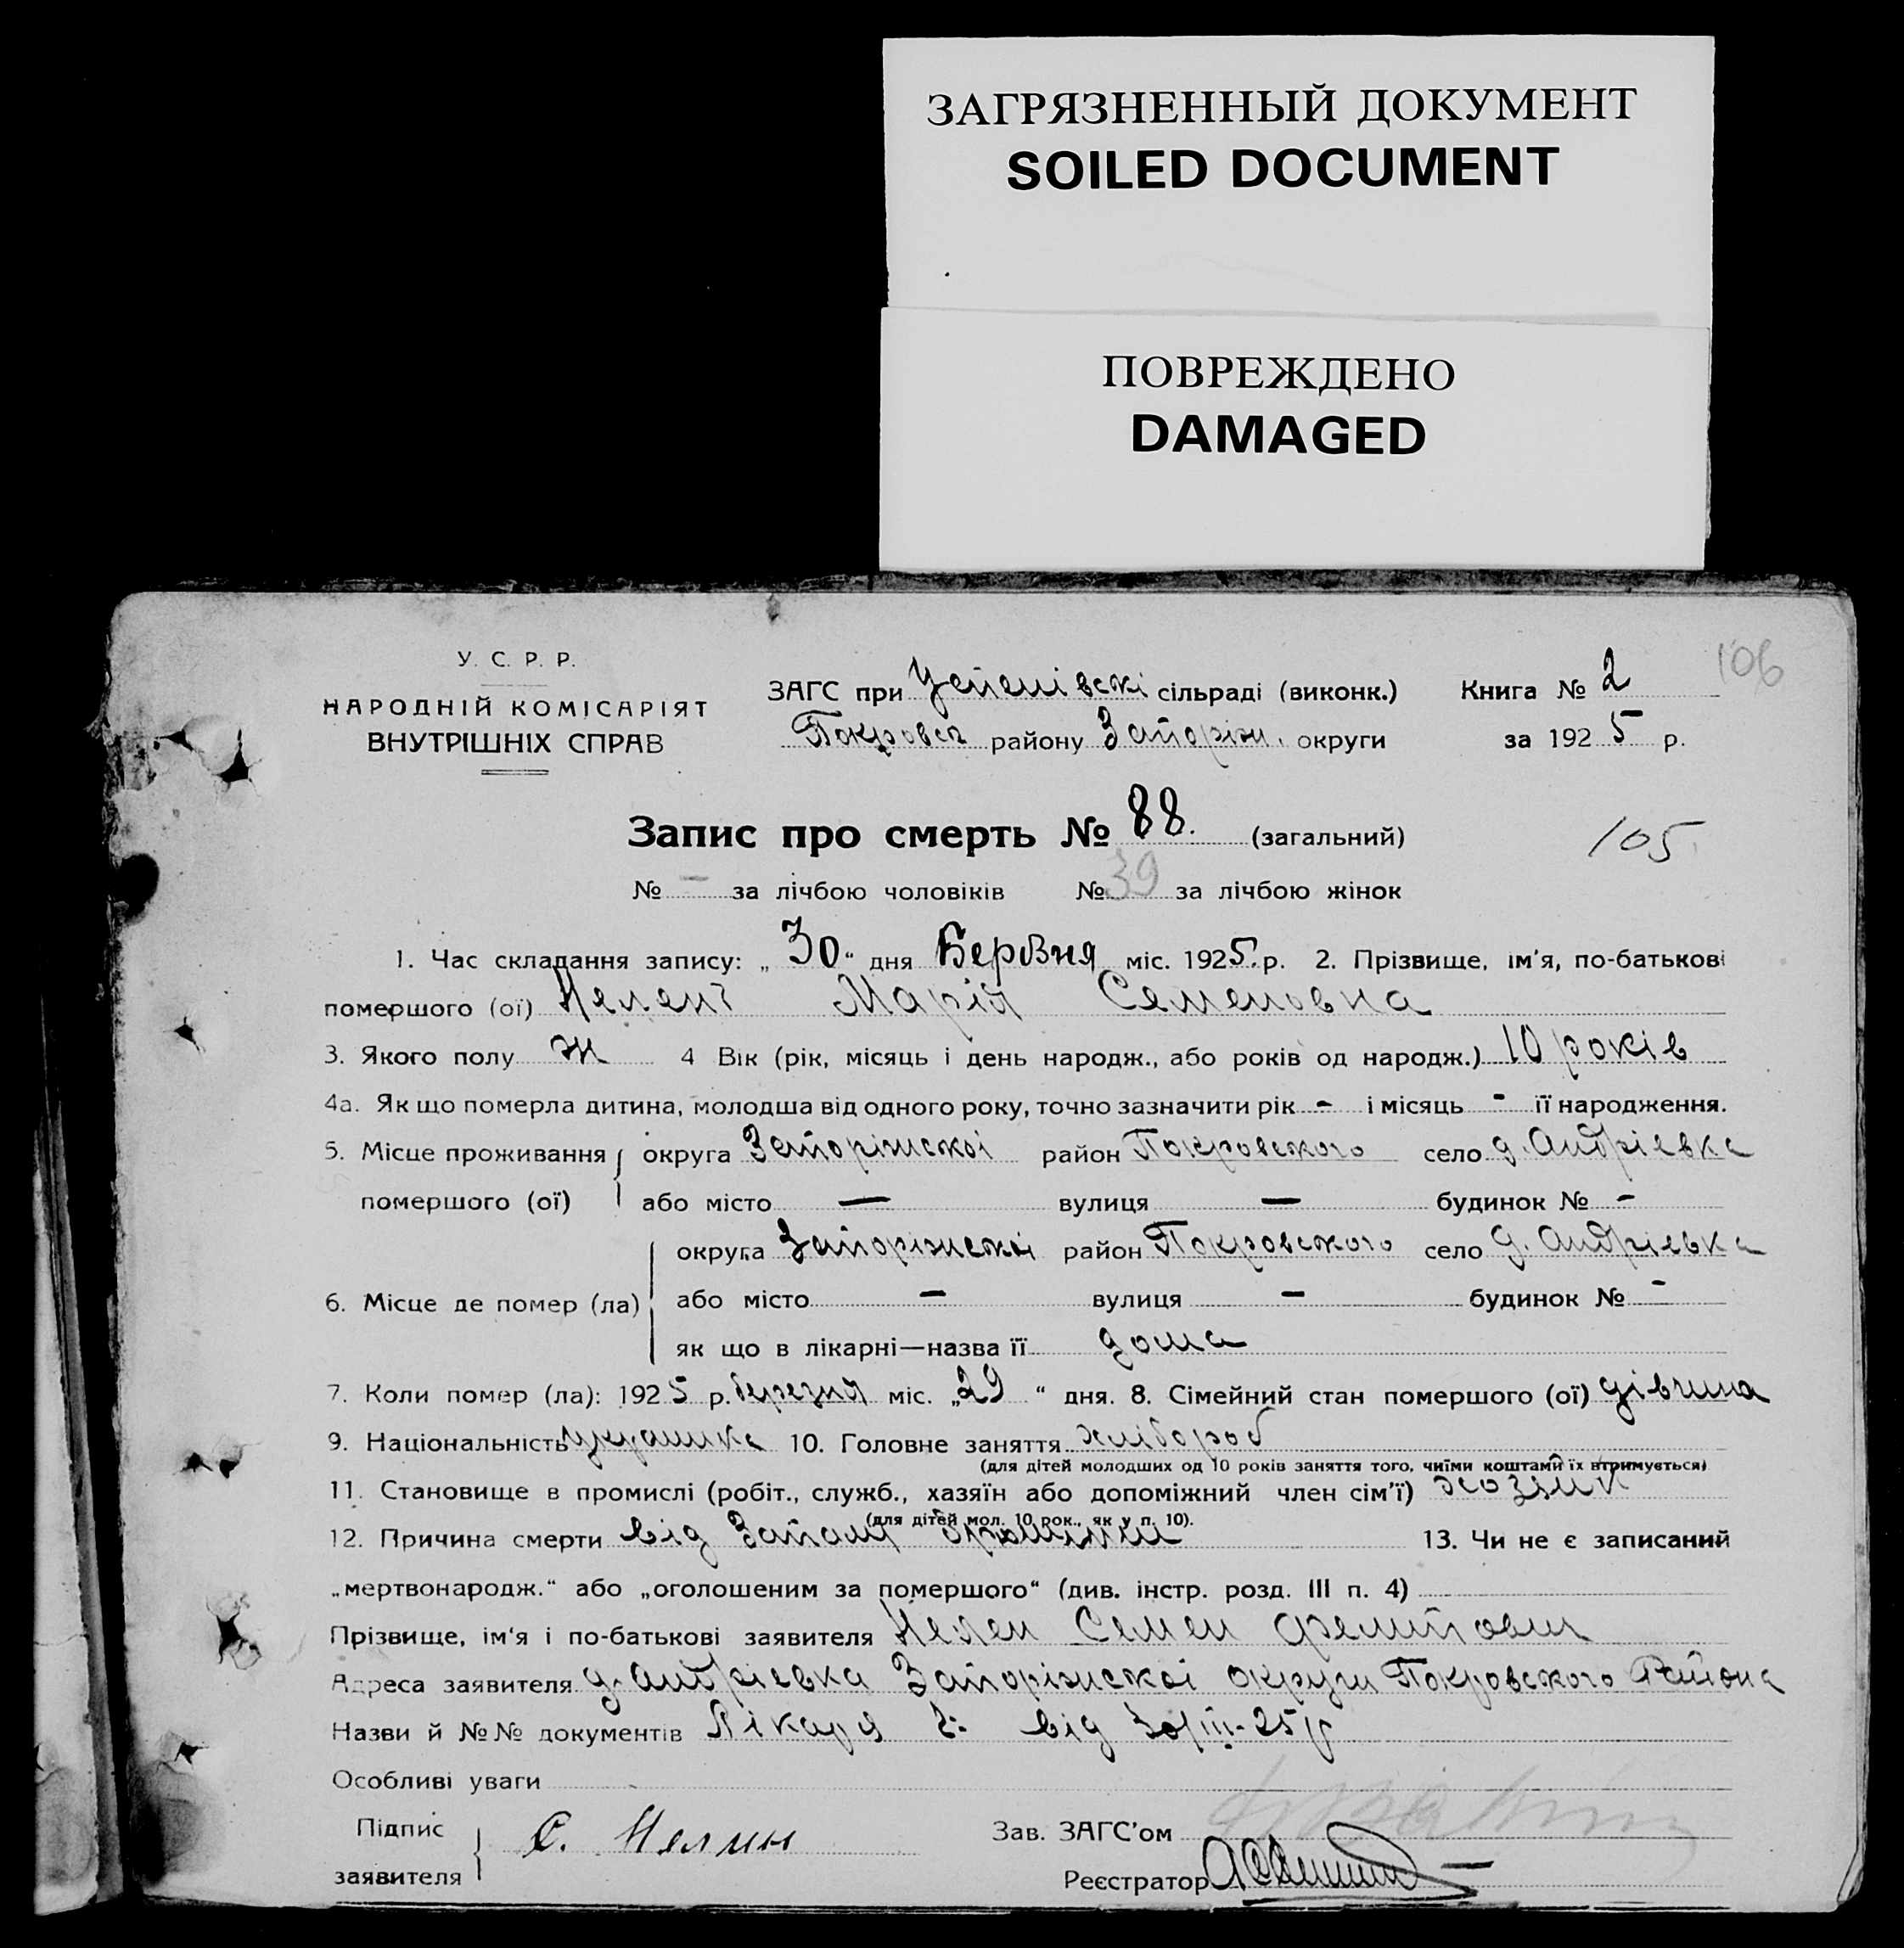 ЗАГРЯЗНЕННЫЙ ДОКУМЕНТ
SOILED DOCUMENT
ПОВРЕЖДЕНО
DAMAGED
106
У. С. Р. Р.
НАРОДНІЙ КОМІСАРІЯТ
ВНУТРІШНІХ СПРАВ
ЗАГС при Успенівскі сільраді (виконк.) Книга № 2
Покровск району Запоріж. округи за 1925 р.
Запис про смерть № 88. (загальний)
105
№ - за лічбою чоловіків № 39 за лічбою жінок
1. Час складання запису: „30“ дня Берозня міс. 1925. р. 2. Прізвище, ім'я, по-батькові
помершого (ої) Марія Семеновна
3. Якого полу ж 4 Вік (рік, місяць і день народж., або років од народж.) 10 років
4а. Як що померла дитина, молодша від одного року, точно зазначити рік - і місяць - її народження.
5. Місце проживання округа Запоріжскоі район Покровского село д. Андріевка
помершого (ої) або місто — вулиця — будинок № -
округа Запоріжскоі район Покровского село д. Андріевка
6. Місце де помер (ла) або місто - вулиця - будинок № -
як що в лікарні—назва її дома
7. Коли помер (ла): 1925 р. березня міс. „29“ дня. 8. Сімейний стан помершого (ої) дівчина
9. Національність украинка 10. Головне заняття хлібороб
(для дітей молодших од 10 років заняття того, чиїми коштами їх втримується)
11. Становище в промислі (робіт., служб., хазяїн або допоміжний член сім'ї) хозяин
(для дітей мол. 10 рок., як у п. 10).
12. Причина смерти від Запалу 13. Чи не є записаний
„мертвонародж.“ або „оголошеним за помершого“ (див. інстр. розд. III п. 4)
Прізвище, ім'я і по-батькові заявителя Семен
Адреса заявителя д. Андріевка Запоріжскоі округи Покровского Района
Назви й №№ документів Лікаря від 30/III-25 р
Особливі уваги
Підпис
заявителя С.
Зав. ЗАГС'ом
Реєстратор